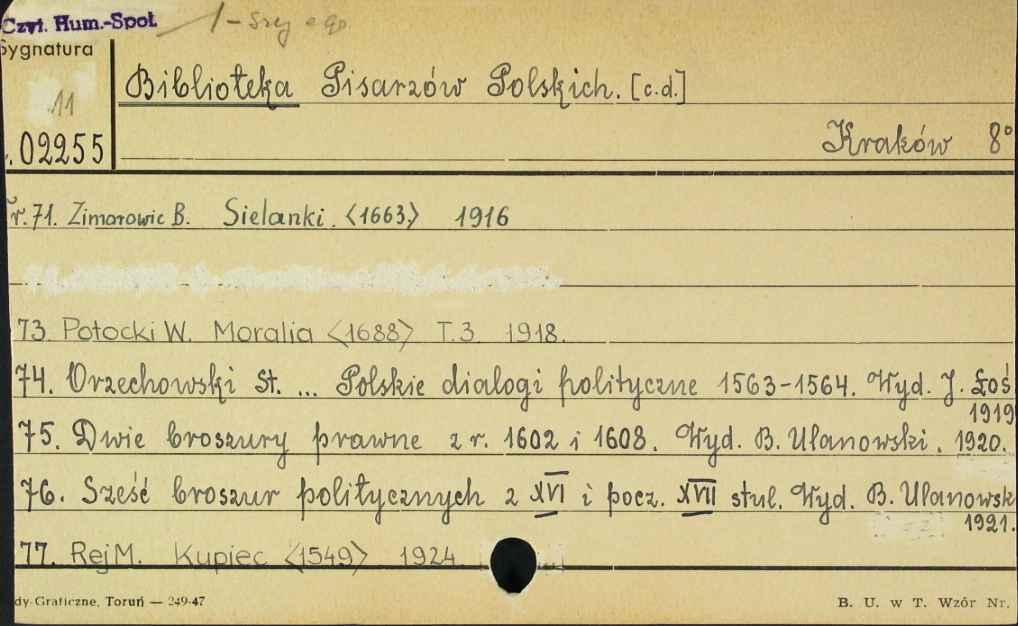 Czyt. Hum.-Społ. 1 - Szej egp.
Sygnatura
11
02255
Biblioteka Pisarzów Polskich. [c.d.]
Kraków 8°
r. 71. Zimorowic B. Sielanki. <1663> 1916
73. Potocki W. Moralia <1688> T.3. 1918.
74. Orzechowski St. ... Polskie dialogi polityczne 1563-1564. Wyd. J. Łoś
1919
75. Dwie broszury prawne z r. 1602 i 1608. Wyd. B. Ulanowski. 1920.
76. Sześć broszur politycznych z XVI i pocz. XVII stul. Wyd. B. Ulanowsk
1921.
77. Rej M. Kupiec <1549> 1924.
dy-Graficzne, Toruń — 249-47
B. U. w T. Wzór Nr.